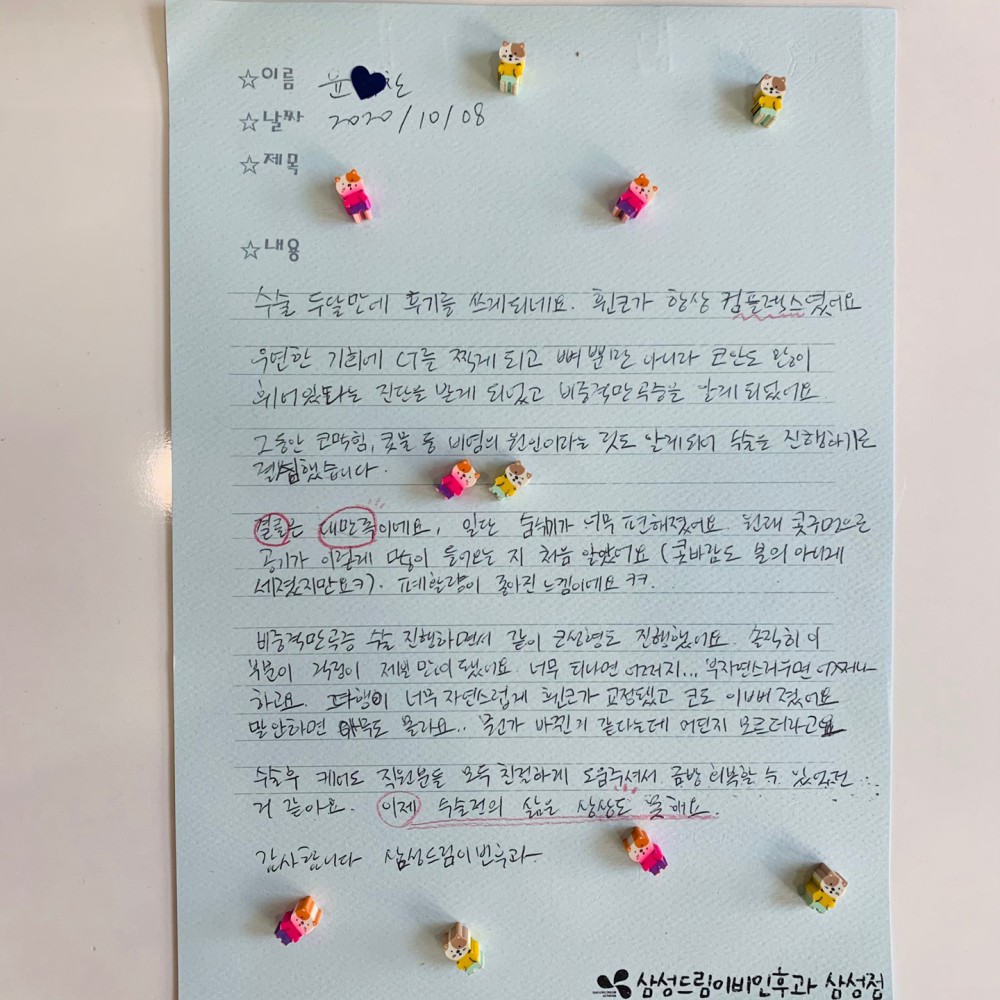 ☆이름 윤 찬
☆날짜 2020/10/08
☆제목
☆내용
수술 두달만에 후기를 쓰게되네요. 휜코가 항상 컴플렉스였어요
우연한 기회에 CT를 찍게 되고 뼈 뿐만 아니라 코안도 많이
휘어있다라는 진단을 받게 되었고 비중격만곡증을 알게 되었어요.
그동안 코막힘, 콧물 등 비염의 원인이라는 것도 알게되어 수술을 진행하기로
결심했습니다.
결론은 대만족이에요, 일단 숨쉬기가 너무 편해졌어요. 원래 콧구멍으로
공기가 이렇게 많이 들어오는 지 처음 알았어요 (콧바람도 본의 아니게
세졌지만요ㅋ). 폐활량이 좋아진 느낌이에요 ㅋㅋ.
비중격만곡증 수술 진행하면서 같이 코성형도 진행했어요. 솔직히 이
부분이 걱정이 제일 많이 됐어요. 너무 티나면 어쩌지... 부자연스러우면 어쩌나
하고요. 다행이 너무 자연스럽게 휜코가 교정됐고 코도 이뻐 졌어요
말안하면 아무도 몰라요.. 뭔가 바뀐거 같다는데 어딘지 모르더라고요
수술후 케어도 직원분들 모두 친절하게 도움주셔서 금방 회복할 수 있었던
거 같아요. 이제 수술전의 삶은 상상도 못해요.
감사합니다 삼성드림이비인후과.
삼성드림이비인후과 삼성점